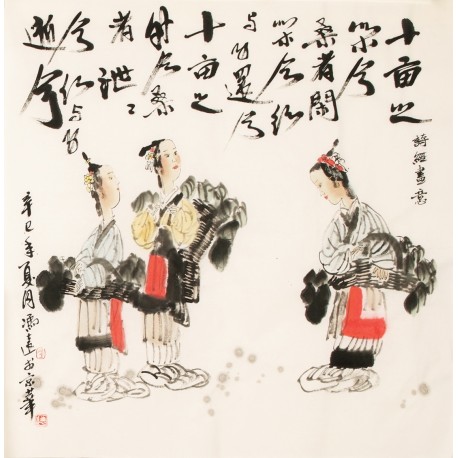 十亩之
间兮
桑者閑
閑兮行
与子還兮
十亩之
外兮桑
者泄〻
兮行与子
逝兮
詩經畫意
辛巳年夏月馮遠於京華